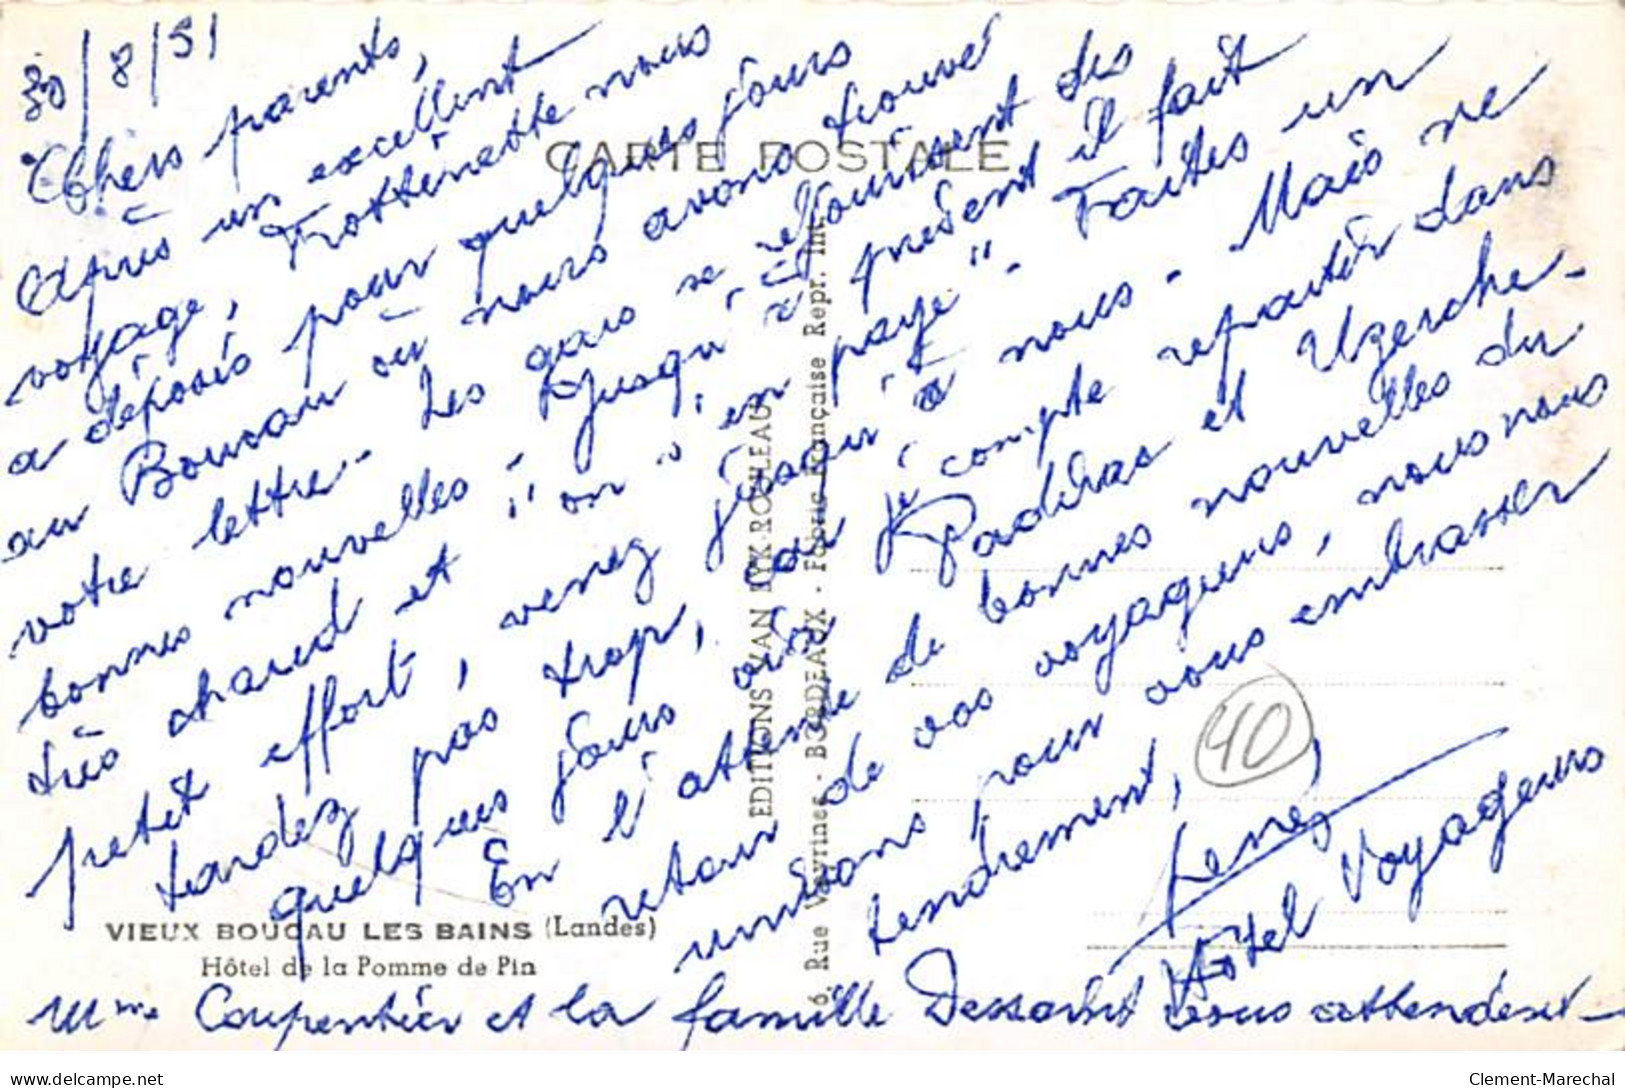 30/8/51
Chers parents,
Après un excellent
voyage, Trottinette nous
a déposés pour quelques jours
au Boucau où nous avons trouvé
votre lettre. Les gars se réjouissent des
bonnes nouvelles. Jusqu'à présent il fait
très chaud et "on" "en paye". Faites un
petit effort, venez jusqu'à nous. Mais ne
tardez pas trop, car je compte repartir dans
quelques jours Padirac et Uzerche.
En l'attente de bonnes nouvelles du
retour de vos voyageurs, nous nous
unissons pour vous embrasser
tendrement,
Hôtel Voyageurs
Mme Coupentier et la famille vous attendent
CARTE POSTALE
EDITIONS VAN EYK-ROULEAU
6, Rue Veyrines - BORDEAUX - Fabric. Française Repr. Int.
VIEUX BOUCAU LES BAINS (Landes)
Hôtel de la Pomme de Pin
40
www.delcampe.net
Clement-Marechal